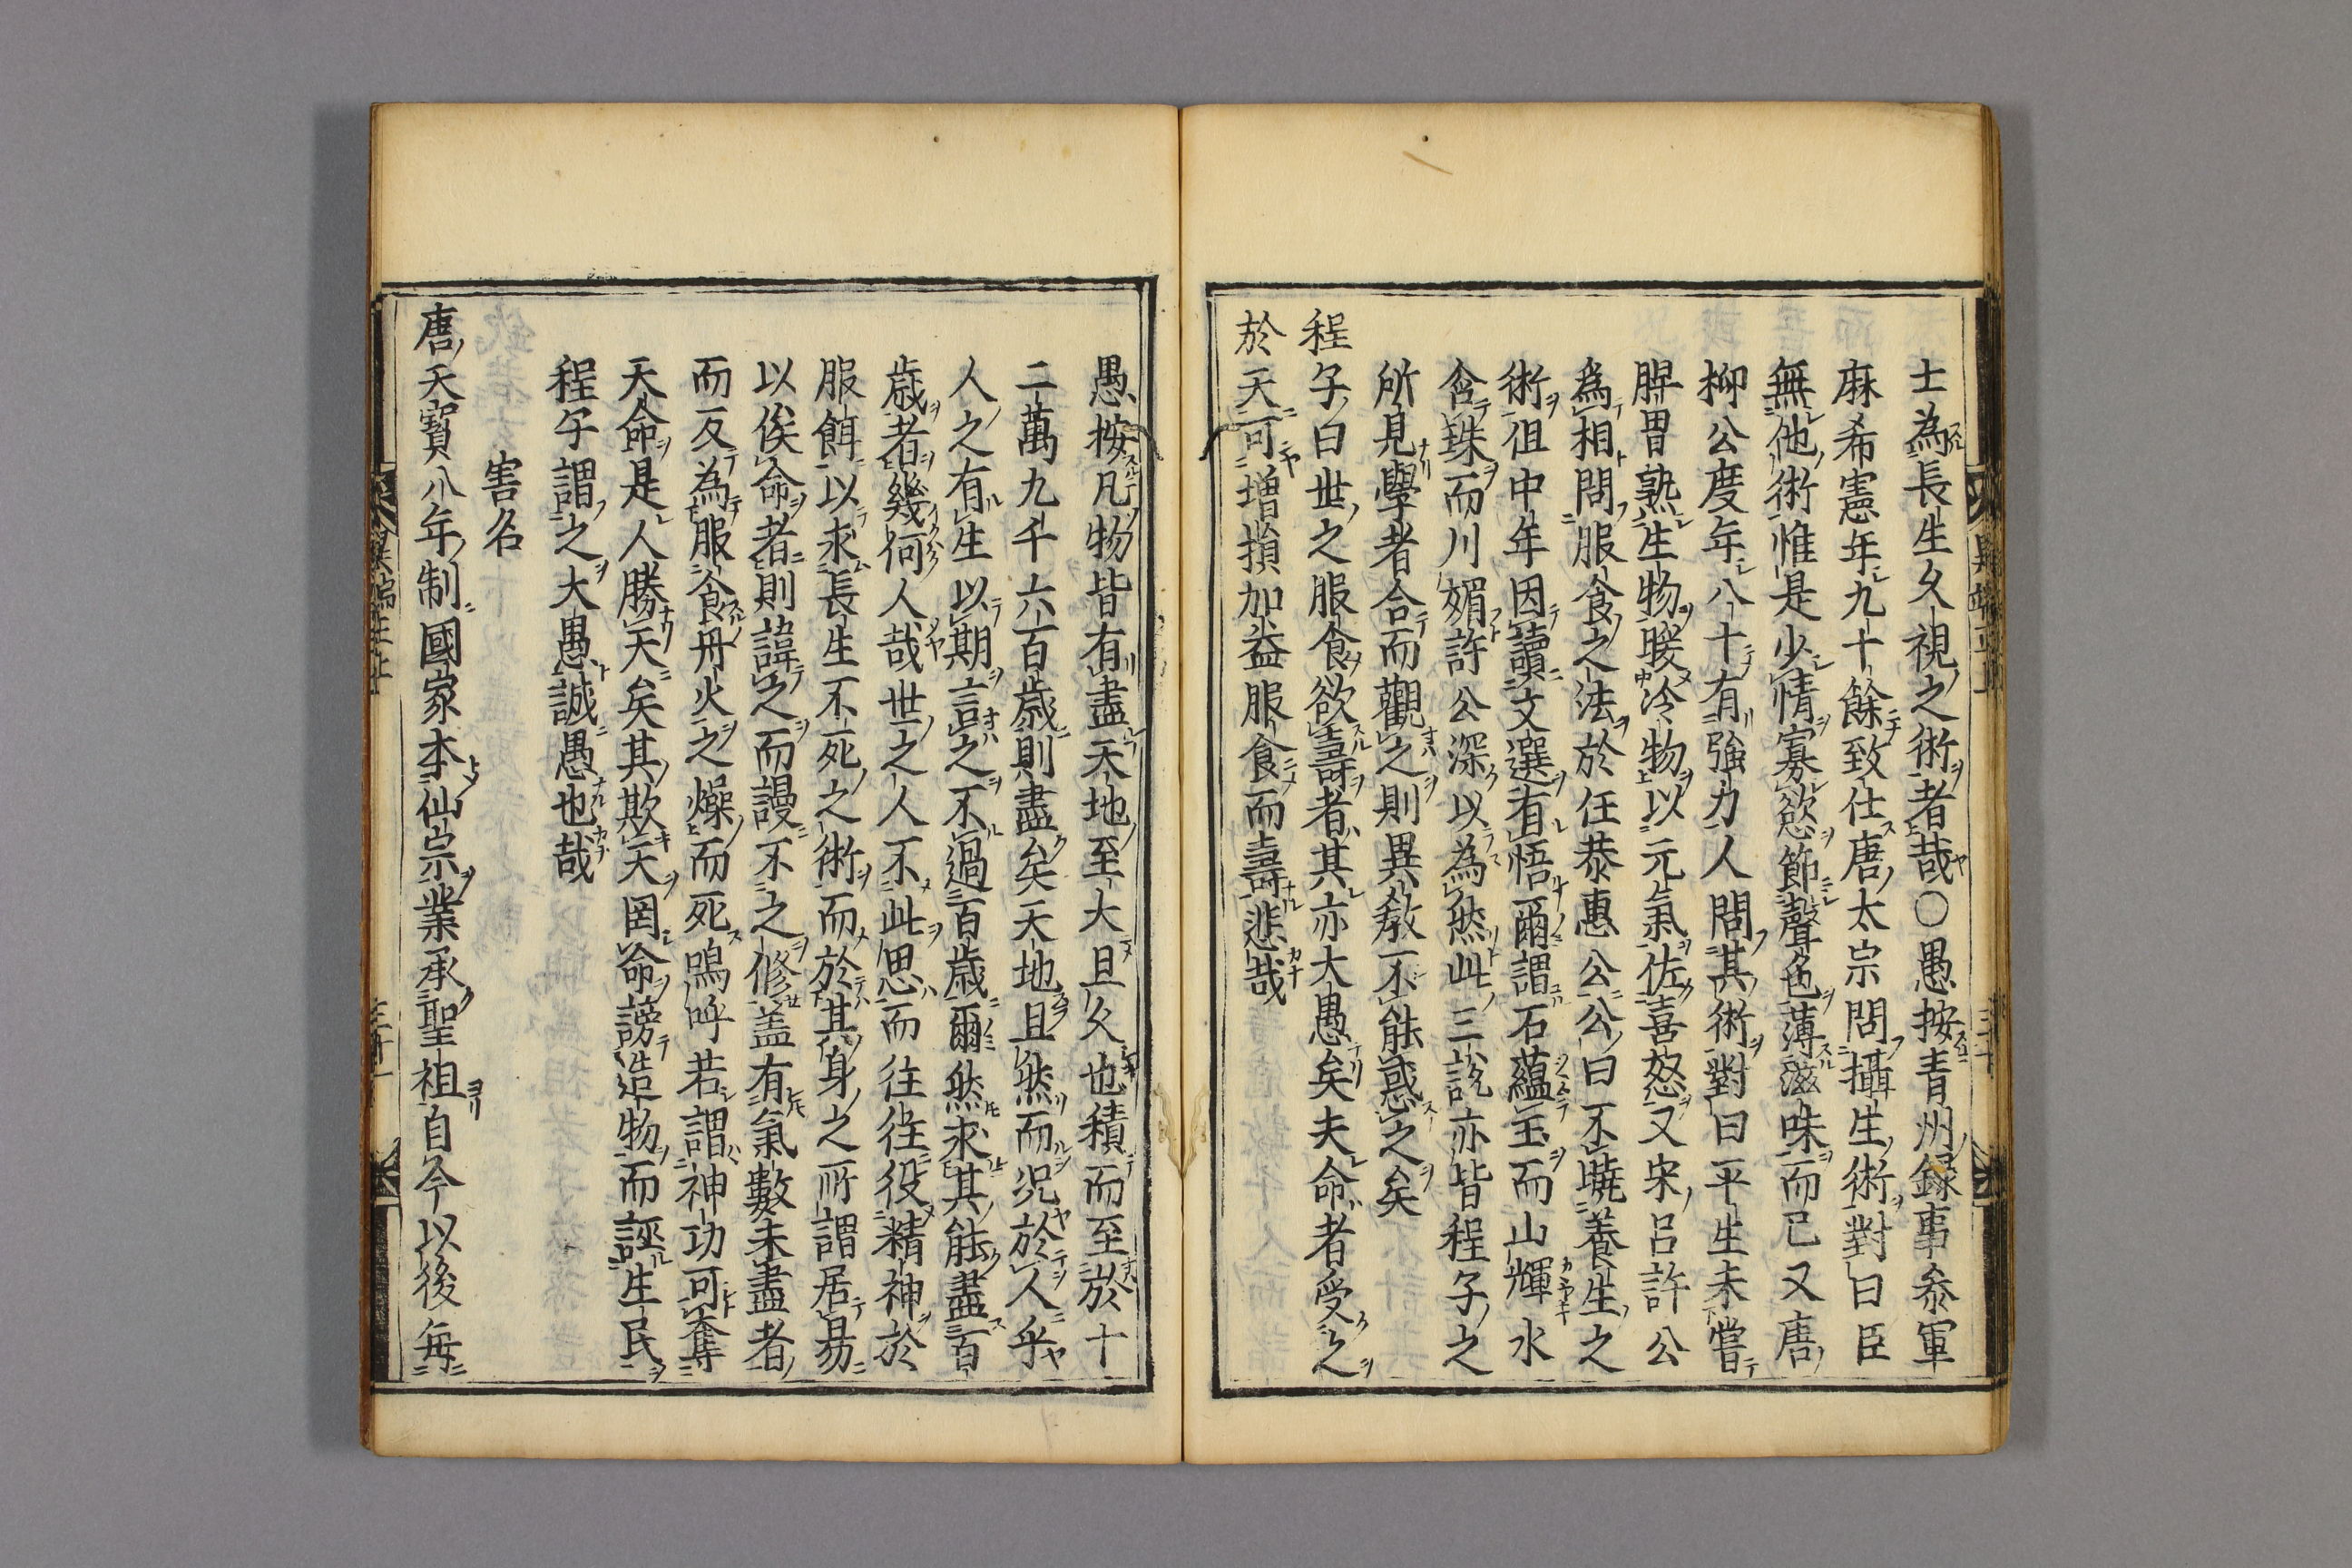 士為長生久視之術者哉○愚按青州録事参軍
麻希憲年九十餘致仕唐太宗問攝生術對曰臣
無他術惟是少情寡慾節聲色薄滋味而已又唐
柳公度年八十有強力人問其術對曰平生未嘗
脾胃熟生物暖冷物以元氣佐喜怒又宋呂許公
為相問服食之法於任恭惠公公曰不曉養生之
術但中年因讀文選有悟爾謂石蘊玉而山輝水
含珠而川媚許公深以為然此三說亦皆程子之
所見學者合而觀之則異教不能惑之矣
程子曰世之服食欲壽者其亦大愚矣夫命者受之
於天可増損加益服食而壽悲哉
愚按凡物皆有盡天地至大且久也積而至於十
二萬九千六百歳則盡矣天地且然而况於人乎
人之有生以期言之不過百歳爾然求其能盡百
歳者幾何人哉世之人不此思而往往役精神於
服餌以求長生不死之術而於其身之所謂居易
以俟命者則諱之而謾不之修盖有氣數未盡者
而反為服食丹火之燥而死嗚呼若謂神功可奪
天命是人勝天矣其欺天罔命謗造物而誣生民
程子謂之大愚誠愚也哉
害名
唐天寶八年制國家本仙宗業承聖祖自今以後毎